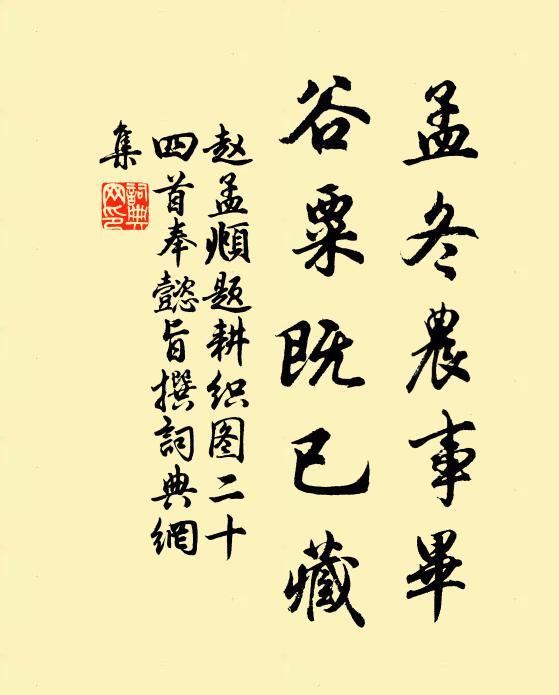 孟冬農事畢
谷粟既已藏
赵孟頫题耕织图二十
四首奉懿旨撰詞典網
集
詞典
网印